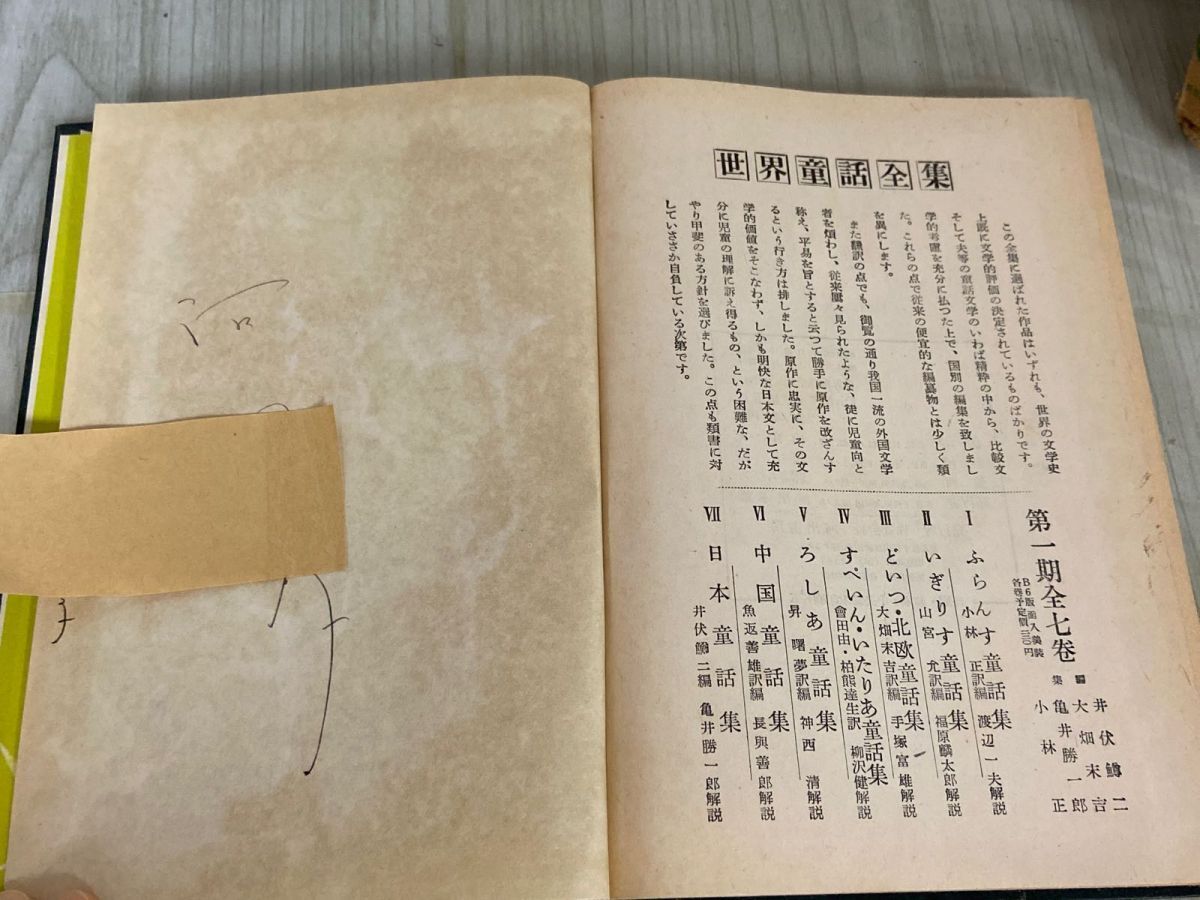 世界童話全集
この全集に選ばれた作品はいずれも、世界の文学史
上既に文学的評価の決定されているものばかりです。
そして夫等の童話文学のいわば精粋の中から、比較文
学的考慮を充分に払つた上で、国別の編集を致しまし
た。これらの点で従来の便宜的な編纂物とは少しく類
を異にします。
また翻訳の点でも、御覧の通り我国一流の外国文学
者を煩わし、従来屡々見られたような、徒に児童向と
称え、平易を旨とすると云つて勝手に原作を改ざんす
るという行き方は排しました。原作に忠実に、その文
学的価値をそこなわず、しかも明快な日本文として充
分に児童の理解に訴え得るもの、という困難な、だが
やり甲斐のある方針を選びました。この点も類書に対
していささか自負している次第です。
編集
井伏鱒二
大畑末吉
亀井勝一郎
小林正
第一期全七巻
B6版函入美装
各巻予定價三〇円
Ⅰ ふらんす童話集
小林正訳編 渡辺一夫解説
Ⅱ いぎりす童話集
山宮允訳編 福原麟太郎解説
Ⅲ どいつ・北欧童話集
大畑末吉訳編 手塚富雄解説
Ⅳ すぺいん・いたりあ童話集
會田由・柏熊達生訳 柳沢健解説
Ⅴ ろしあ童話集
昇曙夢訳編 神西清解説
Ⅵ 中国童話集
魚返善雄訳編 長與善郎解説
Ⅶ 日本童話集
井伏鱒二編 亀井勝一郎解説